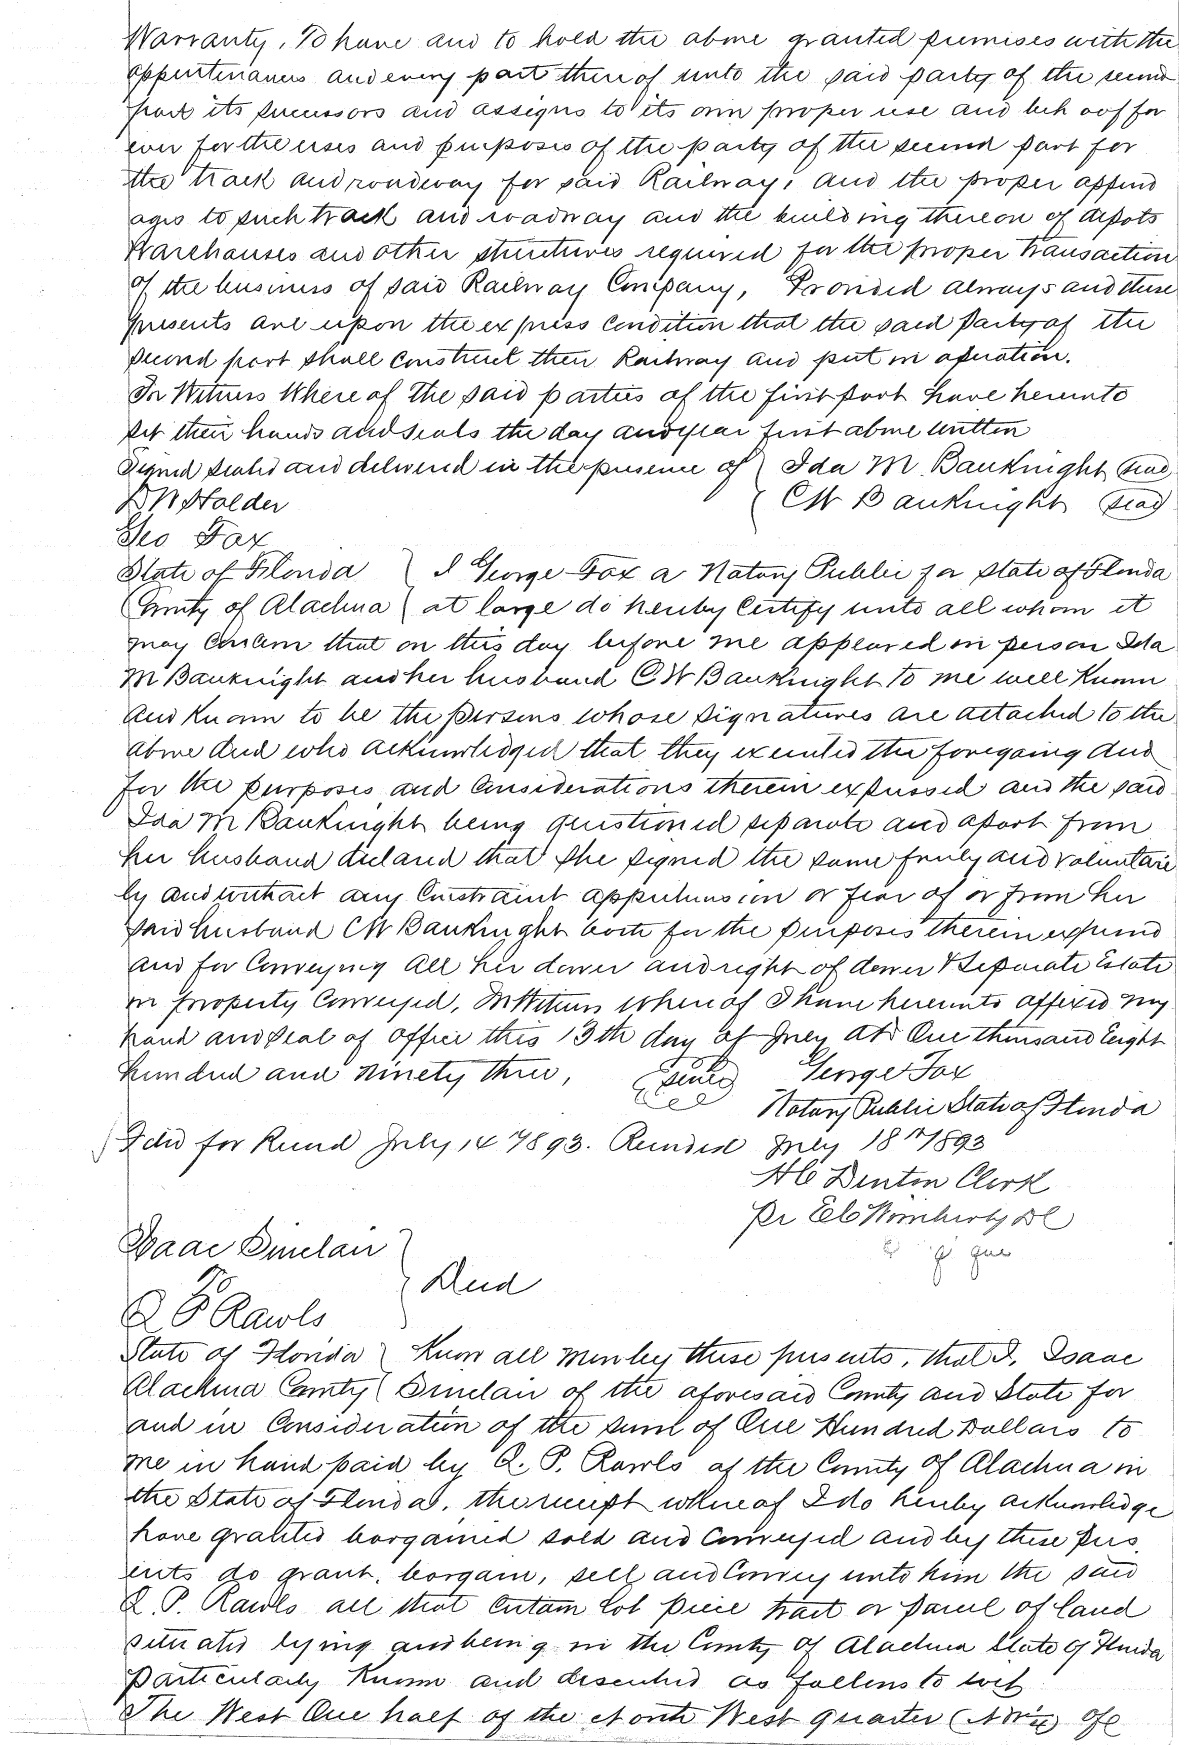 Warranty, To have and to hold the above granted premises with the
appurtenances and every part there of unto the said party of the second
part its successors and assigns to its own proper use and beh oof for
ever for the uses and purposes of the party of the second part for
the track and roadway for said Railway, and the proper append
ages to such track and roadway and the building thereon of depots
Warehouses and other structures required for the proper transaction
of the business of said Railway Company, Provided always and these
presents are upon the express condition that the said party of the
second part shall construct their Railway and put in operation.
In Witness Where of the said parties of the first part have hereunto
set their hands and seals the day and year first above written
Signed sealed and delivered in the presence of Ida M Bauknight seal
D N Holder C W Bauknight seal
Geo Fox
State of Florida I George Fox a Notary Public for State of Florida
County of Alachua at large do hereby Certify unto all whom it
may concern that on this day before me appeared in person Ida
M Bauknight and her husband C W Bauknight to me well known
and known to be the persons whose signatures are attached to the
above deed who acknowledged that they executed the foregoing deed
for the purposes and considerations therein expressed and the said
Ida M Bauknight being questioned separate and apart from
her husband declared that she signed the same freely and voluntari
ly and without any constraint apprehension or fear of or from her
said husband C W Bauknight both for the purposes therein expressed
and for conveying all her dower and right of dower & Separate Estate
in property conveyed. In Witness where of I have hereunto affixed my
hand and seal of office this 13th day of July AD One thousand Eight
hundred and ninety three, George Fox
Notary Public State of Florida
Filed for Record July 14 1893. Recorded July 18 1893
H C Denton Clerk
Pr E C Wimberly DC
Isaac Sinclair
To Deed
Q P Rawls
State of Florida Know all men by these presents, that I, Isaac
Alachua County Sinclair of the aforesaid County and State for
and in consideration of the sum of One Hundred Dollars to
me in hand paid by Q. P. Rawls of the County of Alachua in
the State of Florida, the receipt where of I do hereby acknowledge
have granted bargained sold and conveyed and by these pres
ents do grant, bargain, sell and convey unto him the said
Q. P. Rawls all that certain lot piece tract or parcel of land
situated lying and being in the County of Alachua State of Florida
particularly known and described as follows to wit
The West One half of the North West quarter (NW¼) of